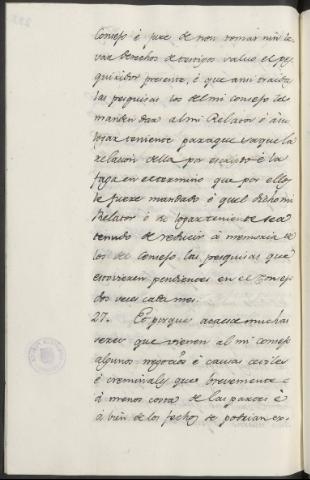 Consejo é jure de non tomar nin le
var derechos de testigo salvo el pes
quisidor presente, é que ansi traidas
las pesquisas los del mi consejo las
manden dar al mi Relator ó á su
lugar teniente para que saque la
relacion della por escripto é la
faga en el termino que por ellos
le fuere mandado é quel dicho mi
Relator ó su lugar teniente sea
tenudo de reducir á memoria á
los del Consejo las pesquisas que
estovieren pendientes en el Conse-
jo dos veces cada mes.
27. Et porque acaesce muchas
veces que vienen al mi consejo
algunos negocios é causas ceviles
é creminales que brevemente é
á menos costa de las partes é
á bien de los fechos se podrian ex-